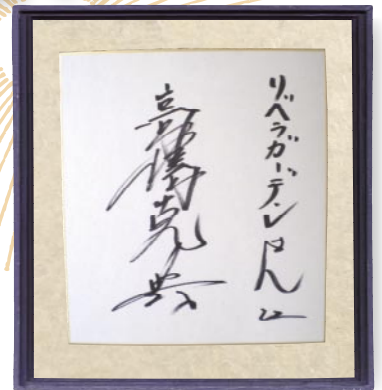 リベラガーデンさん江
高橋克典